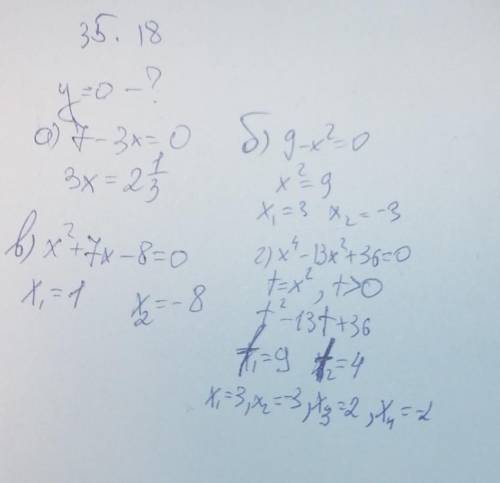 35.18
y=0-?
а) 7-3x=0
3x=2 1/3
б) 9-x²=0
x²=9
x₁=3 x₂=-3
в) x²+7x-8=0
x₁=1 x₂=-8
г) x⁴-13x²+36=0
t=x², t>0
t²-13t+36
t₁=9 t₂=4
x₁=3, x₂=-3, x₃=2, x₄=-2